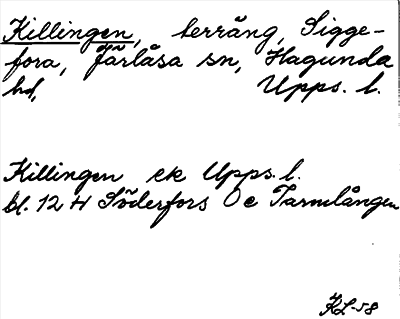 Killingen, terräng, Sigge-
fora, Järlåsa sn, Hagunda
hd, Upps. l.
Killingen ek Upps. l.
bl. 12 H Söderfors O e Tarmlången
KL-58